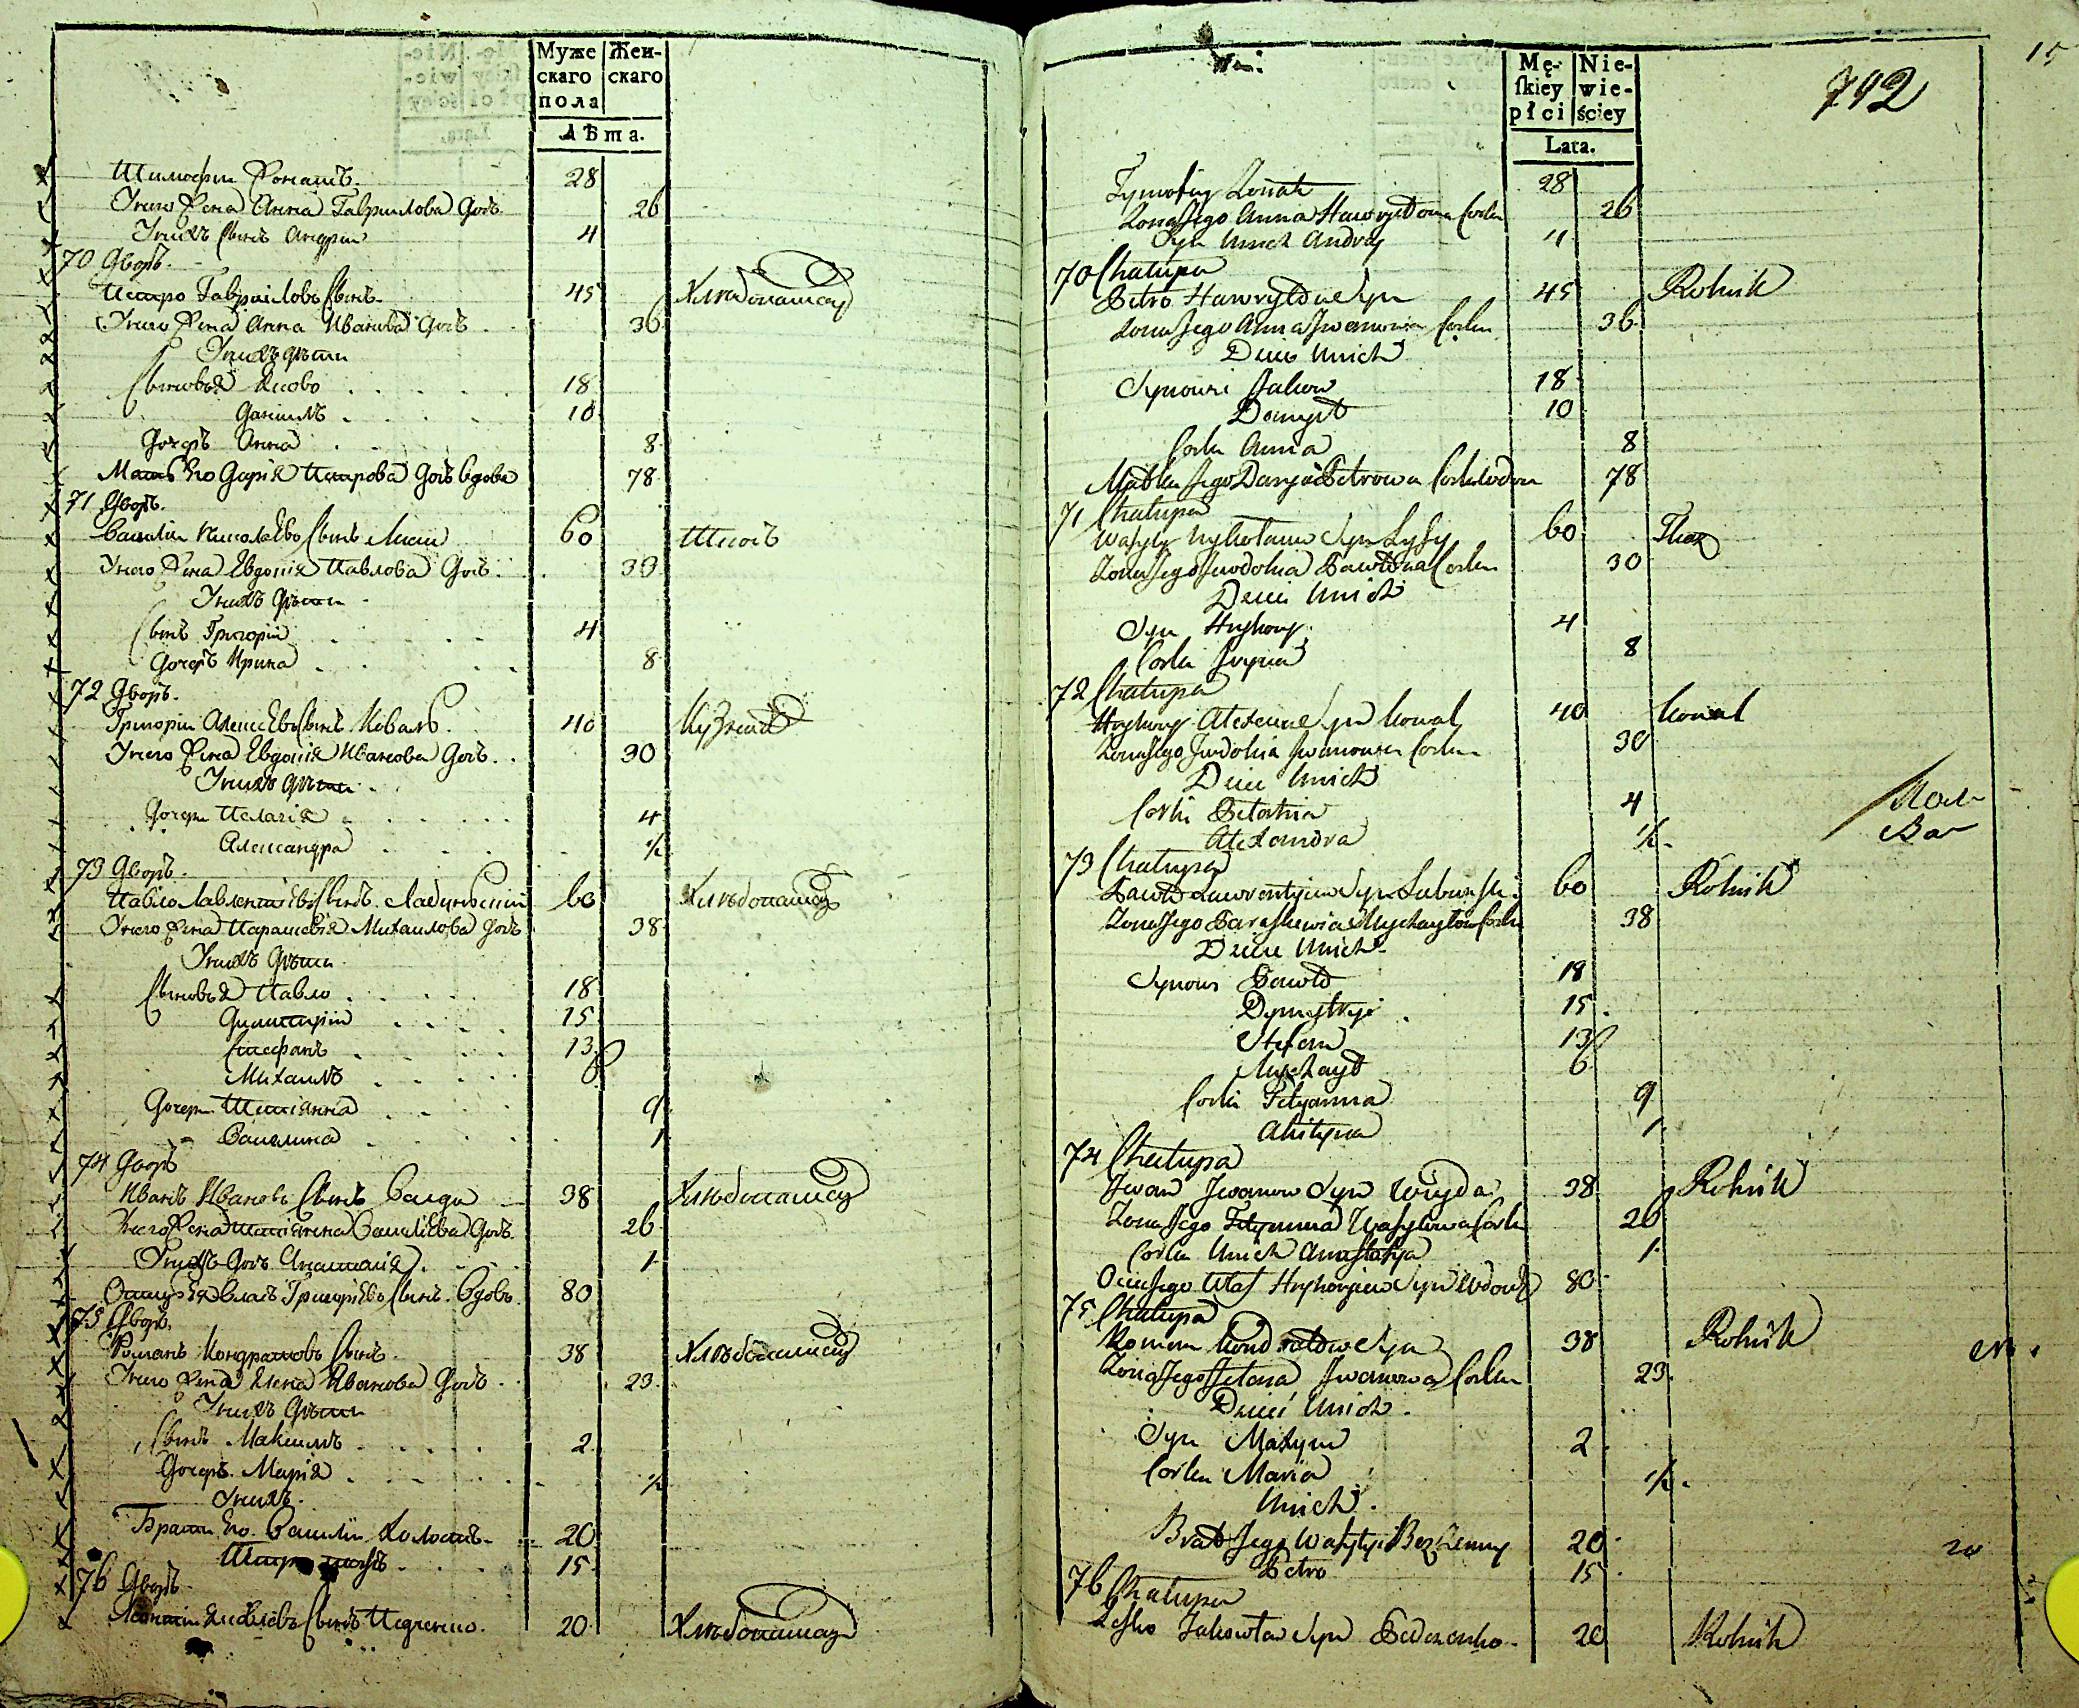 Муже
скаго
пола
Жен-
скаго
Лѣта.
Тимофѣй Жонатъ. 28
Унего Жена Анна Гаврилова Дочь 26
Унихъ Сынъ Андрѣй 4
70 Дворъ.
Петро Гавриловъ Сынъ. 45 Хлѣбопашец
Унего Жена Анна Иванова Дочь 36
Унихъ Дѣти
Сыновья Яково 18
Данилъ 10
Дочерь Анна 8
Мать Его Дарія Петрова Дочь Вдова 78
71 Дворъ.
Василій Николаево Сынъ Лисий 60 Ткачъ
Унего Жена Евдокія Павлова Дочь. 30
Унихъ Дѣти
Сынъ Григорій 4
Дочерь Ирина 8
72 Дворъ.
Григорій Алексѣево Сынъ Коваль. 40 Кузнецъ
Унего Жена Евдокія Иванова Дочь. 30
Унихъ Дѣти
Дочери Пелагія 4
Александра ½
73 Дворъ.
Павло Лаврентіево Сынъ 60 Хлѣбопашец
Унего Жена Парасковія Михаилова Дочь 38
Унихъ Дѣти
Сыновья Павло 18
Димитрій 15
Стефанъ 13
Михаилъ 6
Дочери Тетіянна 9
1
74 Дворъ
Иванъ Ивановъ Сынъ 38 Хлѣбопашец
Унего Жена Тетіянна Василіева Дочь. 26
Унихъ Дочь Анастасія. 1
Отецъ Ея Власъ Григоріево Сынъ. Вдовъ. 80
75 Дворъ.
Романъ Кондратовъ Сынъ. 38 Хлѣбопашец
Унего Жена Елена Иванова Дочь 23
Унихъ Дѣти
Сынъ Максимъ 2
Дочерь Марія ½
Унихъ.
Братъ Его Василій Холостъ 20
15
76 Дворъ.
Сынъ Педченко. 20 Хлѣбопашец
Mę-
ſkiey
płci
Nie-
wie-
ściey
Lata.
792
15
Tymofiy Zonat 28
Zona Jego Anna Hawryłowa Corka 26
Syn Unich Andrey 4
70 Chałupa
Petro Hawryłow Syn 45 Rolnik
Zona Jego Anna Jwanowa Corka 36
Dzieci Unich
Synowi Jakow 18
Danyło 10
Corka Anna 8
Matka Jego Darya Petrowa Corka Wdowa 78
71 Chałupa
Wasyly Nykołaiew Syn Lysy 60 Tkacz
Zona Jego Jewdokia Pawłowa Corka 30
Dzieci Unich
Syn Hryhory 4
Corka Jryna 8
72 Chałupa
Hryhory Alexiew Syn Kowal 40 Kowal
Zona Jego Jwdokia Jwanowa Corka 30
Dzieci Unich
Corki Pelahia 4
Alexandra ½
73 Chałupa
Pawło Lawrentyiew Syn 60 Rolnik
Zona Jego Paraskewia Mychayłowa Corka 38
Dzieci Unich
Synowi Pawło 18
Dymytryi 15
Stefan 13
Mychayło 6
Corki Tetyanna 9
1
74 Chałupa
Jwan Jwanow Syn 38 Rolnik
Zona Jego Tetyanna Wasylowa Corka 26
Corka Unich Anastasya 1
Ociec Jego Wlas Hryhoryiew Syn Wdowy 80
75 Chałupa
Roman Kondratow Syn 38 Rolnik
Zona Jego Jelena Jwanowa Corka 23
Dzieci Unich
Syn Maxym 2
Corka Maria ½
Unich
Brat Jego Wasylyi Bezżenny 20
Petro 15
76 Chałupa
Syn Pedczenko 20 Rolnik